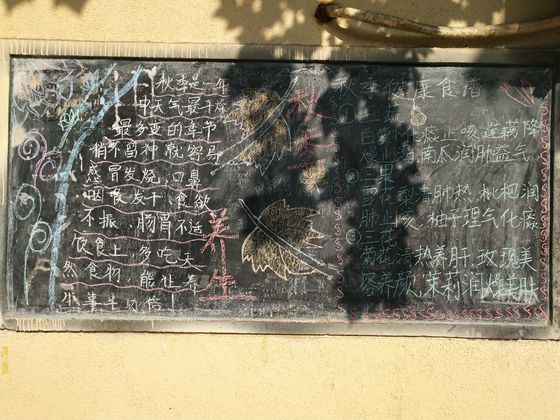 秋季是一年
中天气最干燥
最多变的季节
稍不留神就容易
感冒发烧,口鼻
咽喉发干,食欲
不振,肠胃不适
饮食上,多吃天
然食物,能让养
生事半功倍!
秋季
养生
秋季健康食谱
①三白
白萝卜 化痰止咳莲藕降
燥 南瓜润肺益气
②三果
雪花梨清肺热,枇杷润
肺止咳,柚子理气化痰
③三花
菊花清热养肝,玫瑰美
容养颜,茉莉润燥美肤